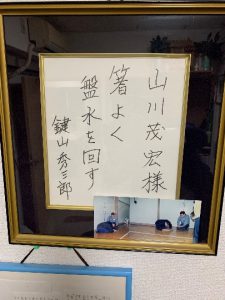 山川茂宏様
箸よく
盤水を回す
鍵山秀三郎